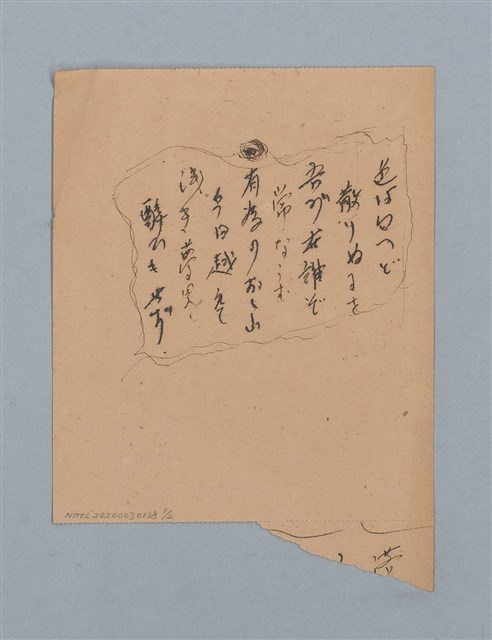 色は匂へど
散りぬるを
吾が世誰ぞ
常ならむ
有為の奥山
今日越えて
浅き夢見し
酔ひもせず
NMTL20200030138 1/2